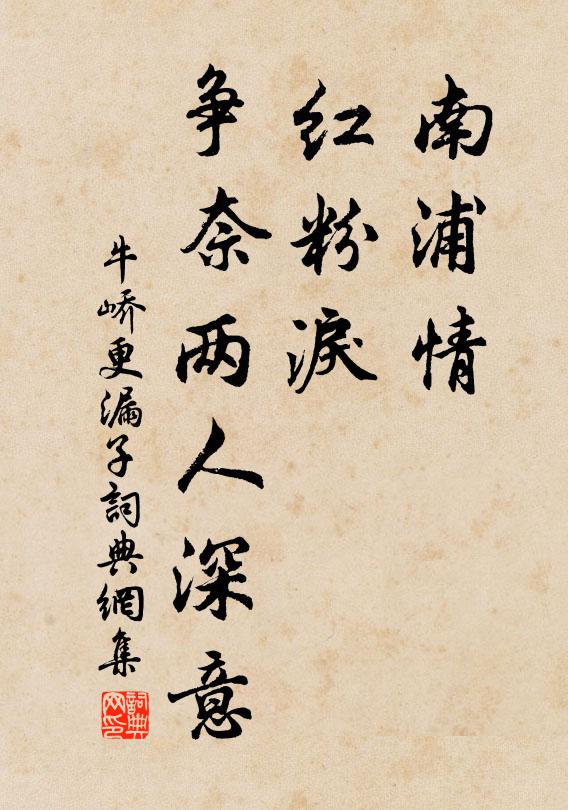 南浦情
红粉淚
争奈两人深意
牛峤更漏子詞典網集
詞典网印